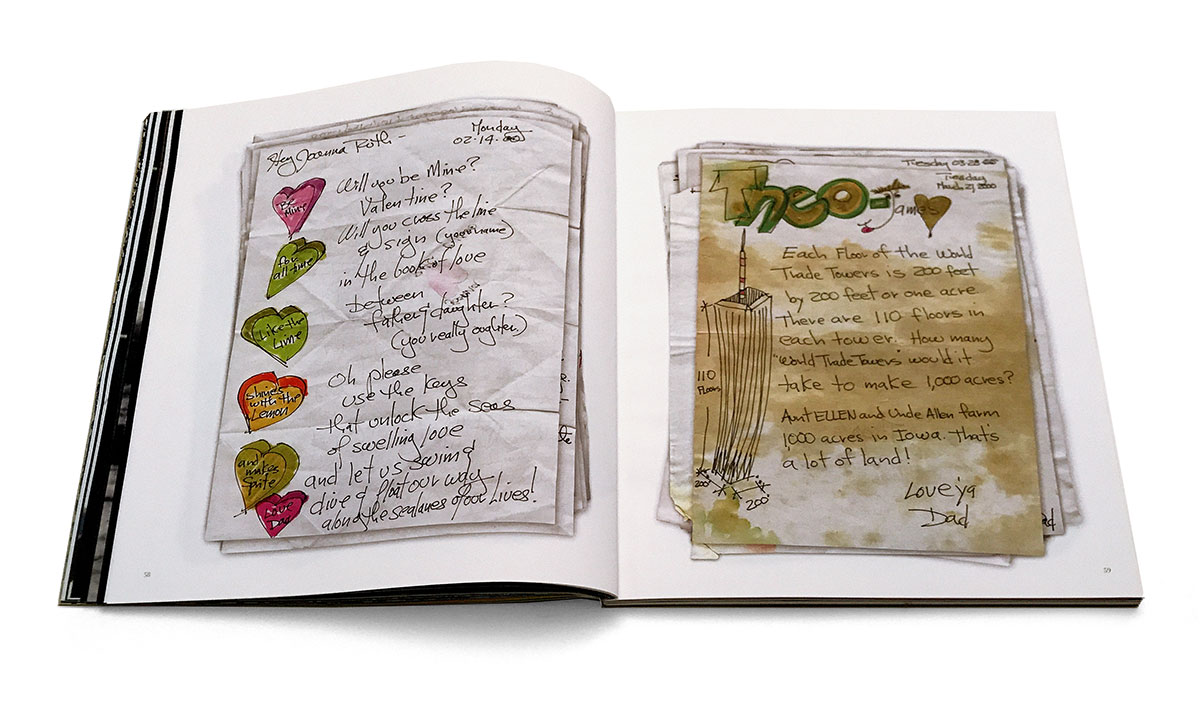 Hey Joanna Ruth -
Monday
02·14·00
Will you be Mine?
Valentine?
Will you cross the line
& sign (your name)
in the book of love
between
father & daughter?
(you really oughter)
Oh please
use the keys
that unlock the seas
of swelling love
and let us swim &
dive & float our way
along the sealanes of our Lives!
Be
Mine
for
all time
Like the
Lime
shines
with the
Lemon
and
makes
Sprite
Love
Dad
58
Tuesday 03·28·00
Tuesday
March 27, 2000
Theo-
James
Each Floor of the World
Trade Towers is 200 feet
by 200 feet or one acre
There are 110 floors in
each tower. How many
"World Trade Towers" would it
take to make 1,000 acres?
Aunt ELLEN and Uncle Allen farm
1,000 acres in Iowa. That's
a lot of land!
Love ya
Dad
110
Floors
200'
200'
ad
59